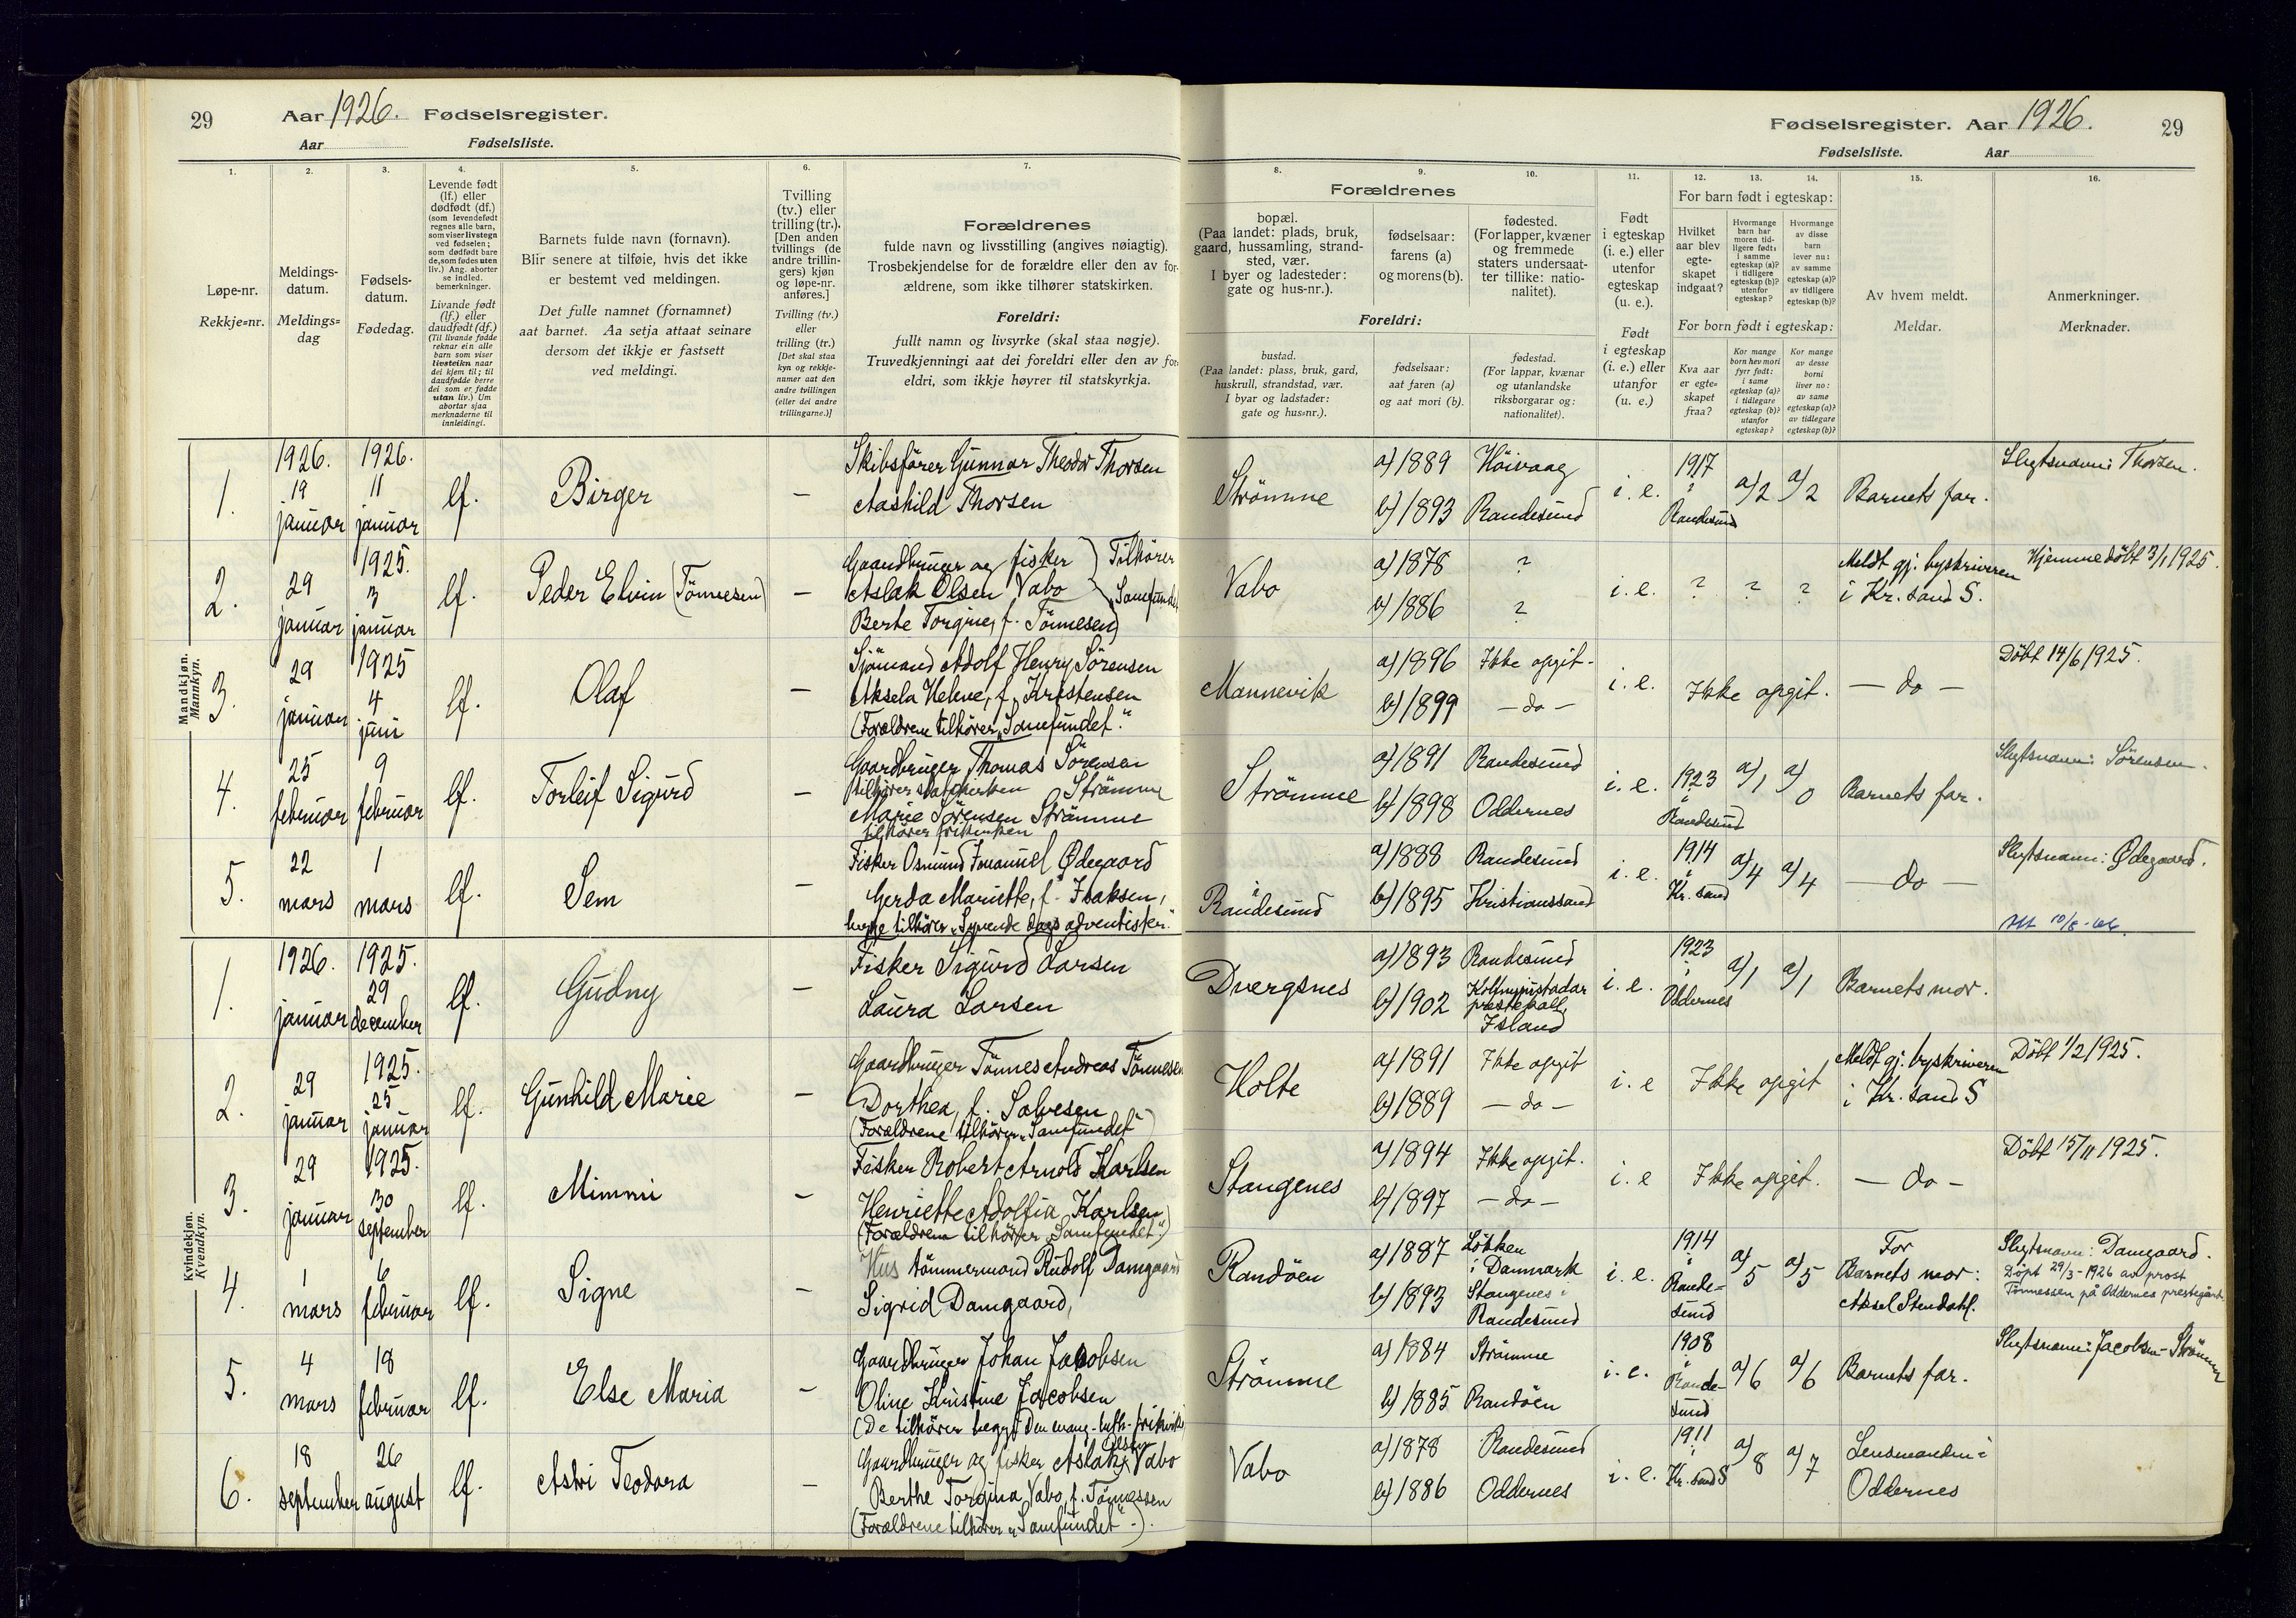 29 Aar 1926. Fødselsregister.
Aar Fødselsliste.
Fødselsregister. Aar 1926. 29
Fødselsliste. Aar
1. 2. 3. 4. 5. 6. 7.
Løpe-nr.
Rekkje=nr.
Meldings-
datum.
Meldings=
dag
Fødsels-
datum.
Fødedag.
Levende født
(lf.) eller
dødfødt (df.)
(som levendefødt
regnes alle barn,
som viser livstegn
ved fødselen;
som dødfødt bare
de, som fødes uten
liv.) Ang. aborter
se indled.
bemerkninger.
Livande født
(lf.) eller
daudfødt (df.)
(Til livande fødde
reknar ein alle
barn som viser
livsteikn naar
dei kjem til; til
daudfødde berre
dei som er fødde
utan liv.) Um
abortar sjaa
merknaderne til
innleidingi.
Barnets fulde navn (fornavn).
Blir senere at tilføie, hvis det ikke
er bestemt ved meldingen.
Det fulle namnet (fornamnet)
aat barnet. Aa setja attaat seinare
dersom det ikkje er fastsett
ved meldingi.
Tvilling
(tv.) eller
trilling (tr.).
[Den anden
tvillings (de
andre trillin-
gers) kjøn
og løpe-nr.
anføres.]
Tvilling (tv.)
eller
trilling (tr.)
[Det skal staa
kyn og rekkje-
numer aat den
andre tvillingen
(eller dei andre
trillingarne.)]
Forældrenes
fulde navn og livsstilling (angives nøiagtig).
Trosbekjendelse for de forældre eller den av for-
ældrene, som ikke tilhører statskirken.
Foreldri:
fullt namn og livsyrke (skal staa nøgje).
Truvedkjenningi aat dei foreldri eller den av for-
eldri, som ikkje høyrer til statskyrkja.
8. 9. 10. 11. 12. 13. 14. 15. 16.
Forældrenes
bopæl.
(Paa landet: plads, bruk,
gaard, hussamling, strand-
sted, vær.
I byer og ladesteder:
gate og hus-nr.).
fødselsaar:
farens (a)
og morens (b).
fødested.
(For lapper, kvæner
og fremmede
staters undersaat-
ter tillike: natio-
nalitet).
Foreldri:
bustad.
(Paa landet: plass, bruk, gard,
huskrull, strandstad, vær.
I byar og ladstader:
gate og hus=nr.).
fødselsaar:
aat faren (a)
og aat mori (b).
fødestad.
(For lappar, kvænar
og utanlandske
riksborgarar og:
nationalitet).
Født
i egteskap
(i. e.) eller
utenfor
egteskap
(u. e.).
Født
i egteskap
(i. e.) eller
utanfor
(u. e.)
For barn født i egteskap:
Hvilket
aar blev
egte-
skapet
indgaat?
Hvormange
barn har
moren tid-
ligere født:
i samme
egteskap (a)?
i tidligere
egteskap (b)?
utenfor
egteskap?
Hvormange
av disse
barn
lever nu:
av samme
egteskap (a)?
av tidligere
egteskap (b)?
For born født i egteskap:
Kva aar
er egte=
skapet
fraa?
Kor mange
born hev mori
fyrr født:
i same
egteskap (a)?
i tidlegare
egteskap (b)?
utanfor
egteskap?
Kor mange
av desse
borni
liver no:
av same
egteskap (a)?
av tidlegare
egteskap (b)?
Av hvem meldt.
Meldar.
Anmerkninger.
Merknader.
Mandkjøn.
Mannkyn.
1. 1926. 19 januar 1926. 11 januar lf. Birger —
Skibsfører Gunnar Theodor Thorsen
Aashild Thorsen
Strömme a) 1889 Höivaag b) 1893 Randesund i. e. 1917 i Randesund a/2 a/2 Barnets far. Slegtsnavn: Thorsen.
2. 29 januar 1925. 3 januar lf. Peder Elvin (Tönnesen) —
Gaardbruger og fisker
Aslak Olsen Vabo
Berte Torgine, f. Tönnesen
Tilhører „Samfundet
Vabo a) 1878 ? b) 1886 ? i. e. ? ? ? Meldt gj. byskriveren i Kr. sand S. Hjemmedöbt 3/1 1925.
3. 29 januar 1925 4 juni lf. Olaf —
Sjömand Adolf Henry Sörensen
Aksela Helene, f. Kristensen
(Forældrene tilhører „Samfundet."
Mannevik a) 1896 Ikke opgit. b) 1899 — do — i. e. Ikke opgit. — do — Döbt 14/6 1925.
4. 25 februar 9 februar lf. Torleif Sigurd —
Gaardbruger Thomas Sörensen
tilhører statskirken Strömme
Marie Sörensen Strömme
tilhører frikirken
Strömme a) 1891 Randesund b) 1898 Oddernes i. e. 1923 i Randesund a/1 a/0 Barnets far. Slegtsnavn: Sörensen.
5. 22 mars 1 mars lf. Sem —
Fisker Osmund Imanuel Ødegaard
Gerda Mariette, f. Isaksen,
begge tilhører „Syvende dags adventister."
i Randesund a) 1888 Randesund b) 1895 Kristianssand i. e. 1914 i Kr. sand a/4 a/4 — do — Slegtsnavn: Ødegaard.
10/8-66.
Kvindekjøn.
Kvendkyn.
1. 1926. januar 1925. 29 december lf. Gudny —
Fisker Sigurd Larsen
Laura Larsen
Dvergsnes a) 1893 Randesund b) 1902 prestekall, Island i. e. 1923 i Oddernes a/1 a/1 Barnets mor.
2. 29 januar 1925. 25 januar lf. Gunhild Marie —
Gaardbruger Tönnes Andreas Tönnesen
Dorthea, f. Salvesen
(Forældrene tilhører „Samfundet")
Holte a) 1891 Ikke opgit b) 1889 — do — i. e Ikke opgit Meldt gj. byskriveren i Kr. sand S Döbt 1/2 1925.
3. 29 januar 1925. 30 september lf. Mimmi —
Fisker Robert Arnold Karlsen
Henriette Adolfia Karlsen
(Forældrene tilhører „Samfundet".)
Stangenes a) 1894 Ikke opgit. b) 1897 — do — i. e Ikke opgit. — do — Döbt 15/11 1925.
4. 1 mars 6 februar lf. Signe —
Hus tömmermand Rudolf Damgaard
Sigrid Damgaard,
Randöen a) 1887 Lökken i Danmark b) 1893 Stangenes i Randesund i. e. 1914 i Rande-sund a/5 a/5 For Barnets mor: Aksel Stendahl. Slegtsnavn: Damgaard.
Döpt 29/3-1926 av prost
Tönnessen på Oddernes prestegård
5. 4 mars 18 februar lf. Else Maria —
Gaardbruger Johan Jacobsen
Oline Kristine Jacobsen
(De tilhører begge Den evang.-luth. frikirke
Strömme a) 1884 Strömme b) 1885 Randöen i. e. 1908 i Rande-sund a/6 a/6 Barnets far. Slegtsnavn: Jacobsen-Strömme
6. 18 september 26 august lf. Astri Teodora —
Gaardbruger og fisker Aslak Olsen Vabo
Berthe Torgina Vabo, f. Tönnessen
(Forældrene tilhører „Samfundet".)
Vabo a) 1878 Randesund b) 1886 Oddernes i. e. 1911 i Kr. sand S a/8 a/7 Lensmanden i Oddernes